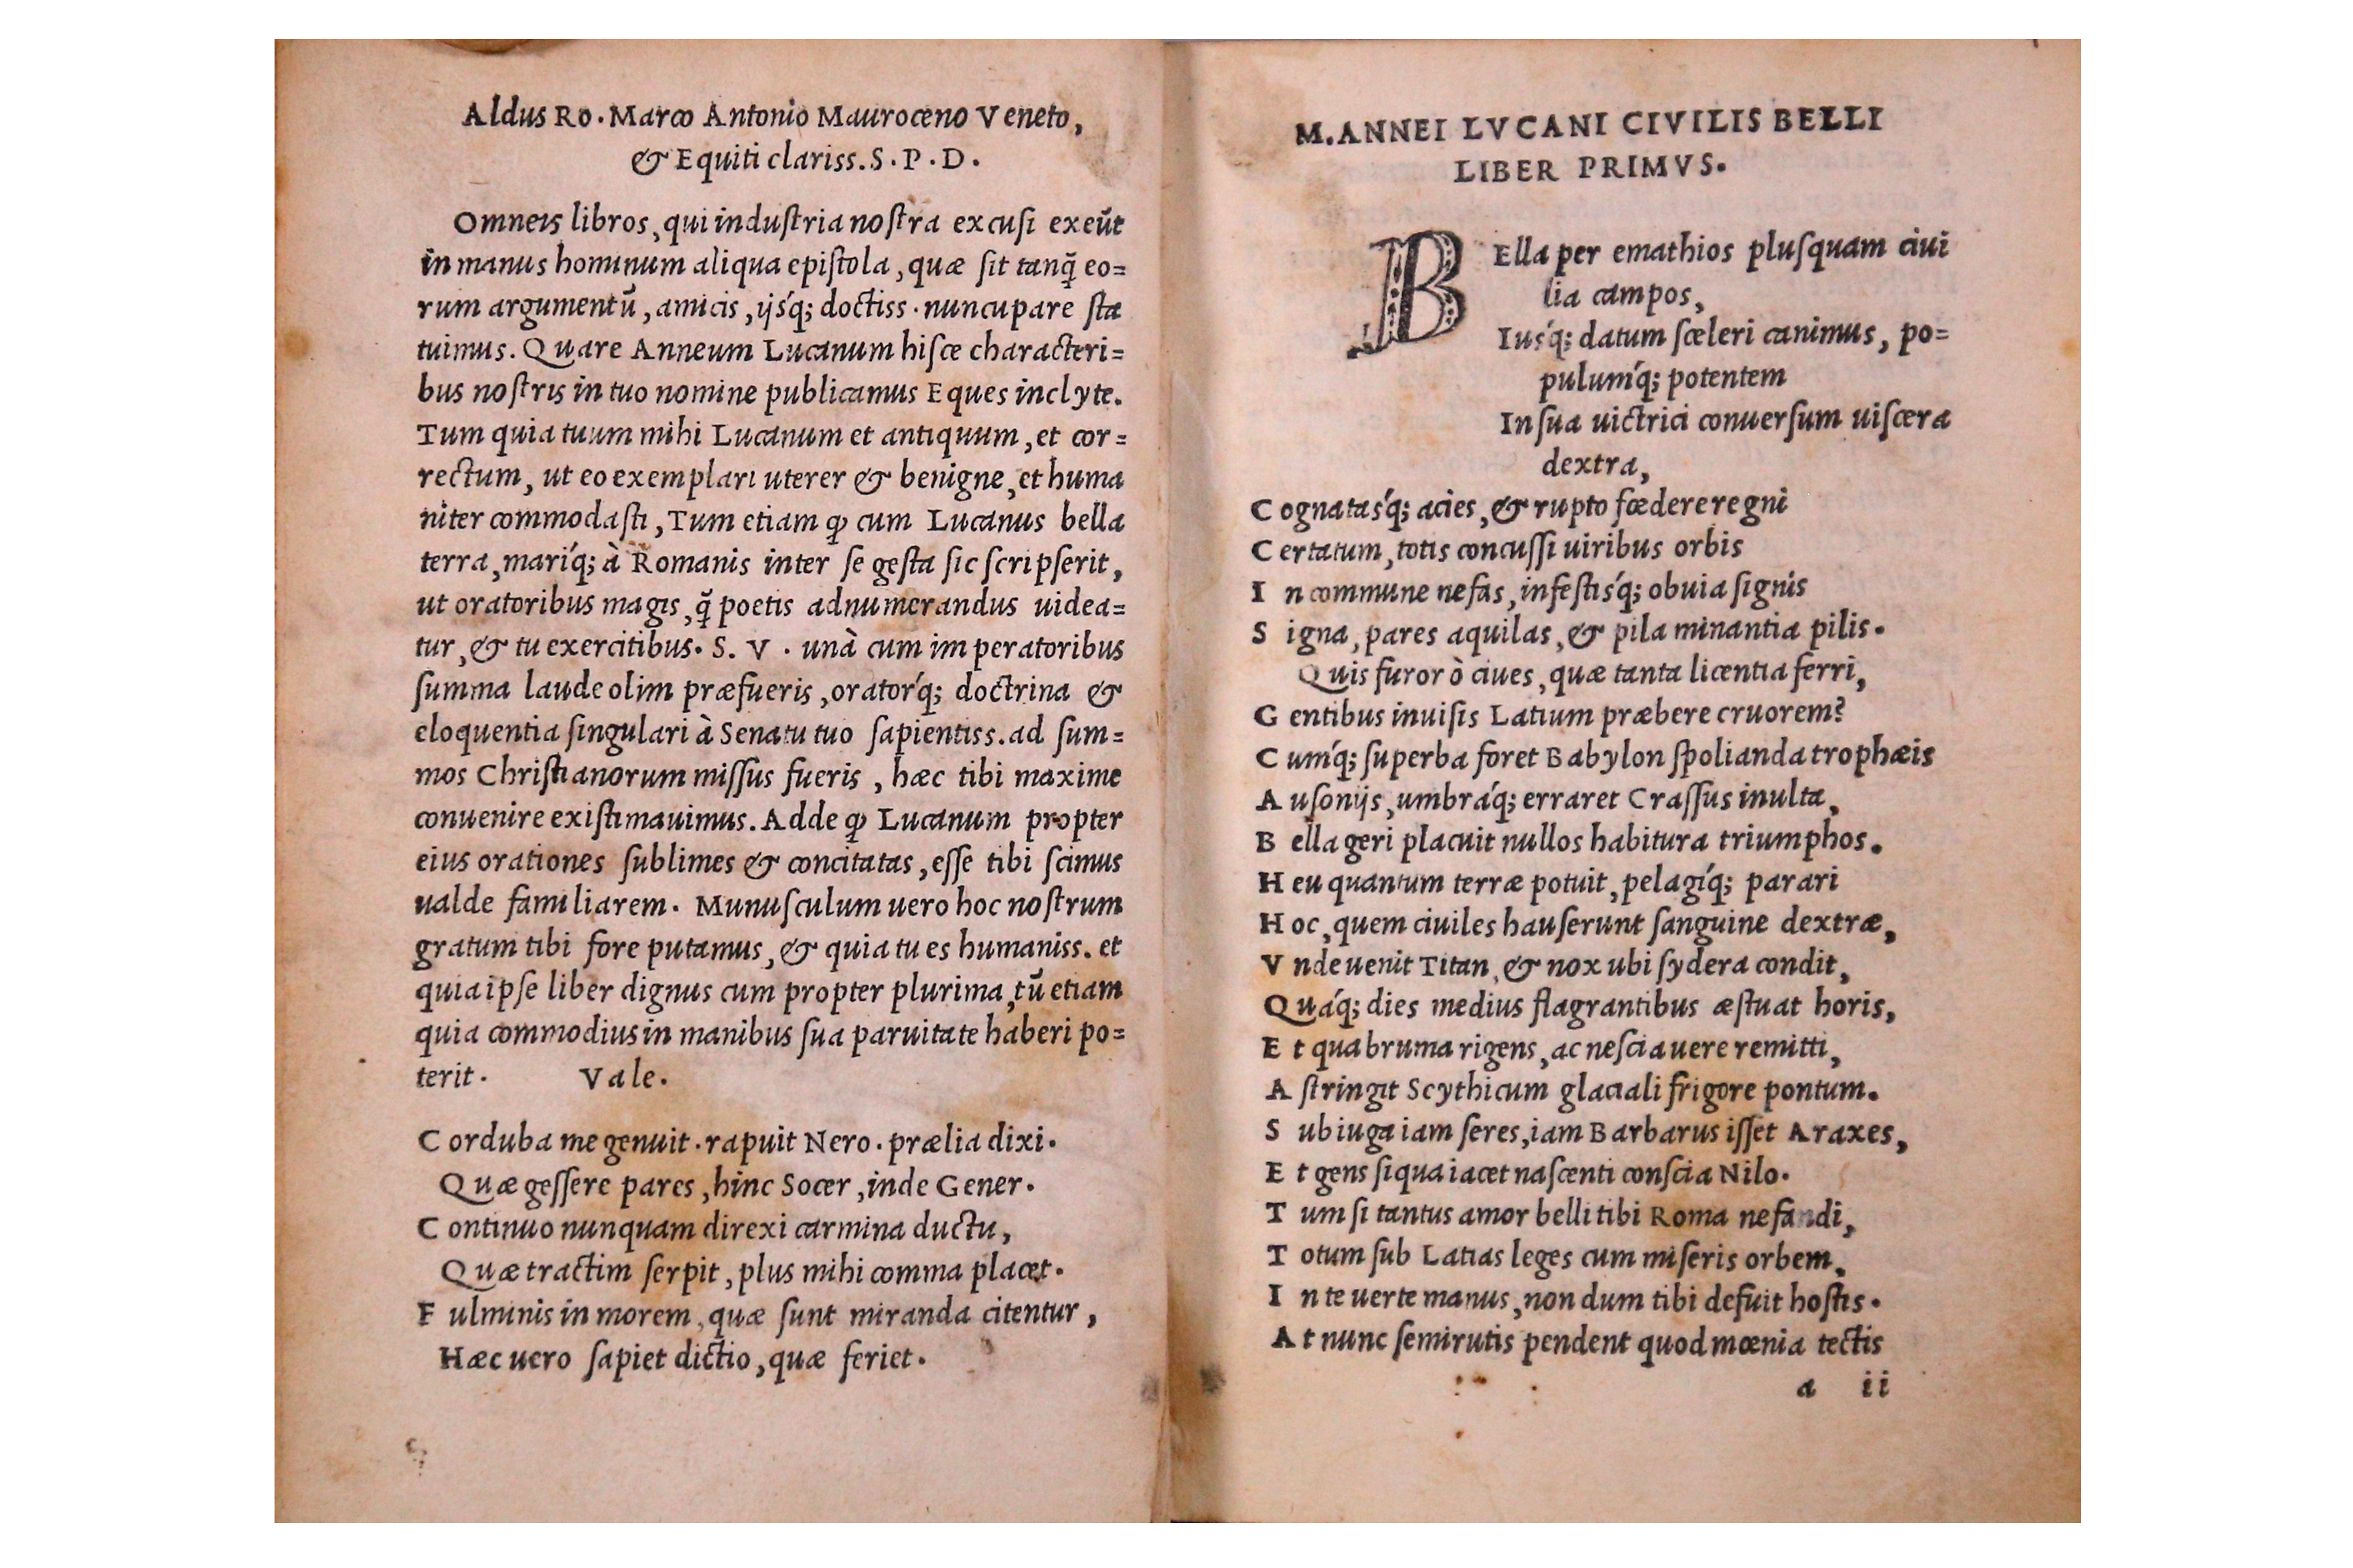 Aldus Ro. Marco Antonio Mauroceno Veneto,
& Equiti clariss. S. P. D.
Omneis libros, qui induſtria noſtra excuſi exeūt
in manus hominum aliqua epiſtola, quæ ſit tanq̄ eo=
rum argumentū, amicis, ijsq́; doctiss. nuncupare ſta
tuimus. Quare Anneum Lucanum hiſce characteri=
bus noſtris in tuo nomine publicamus Eques inclyte.
Tum quia tuum mihi Lucanum et antiquum, et cor=
rectum, ut eo exemplari uterer & benigne, et huma
niter commodaſti, Tum etiam ꝙ cum Lucanus bella
terra, mariq́; à Romanis inter ſe geſta ſic ſcripſerit,
ut oratoribus magis, q̄ poetis adnumerandus uidea=
tur, & tu exercitibus. S. V. unà cum imperatoribus
ſumma laude olim præfueris, oratorq́; doctrina &
eloquentia ſingulari à Senatu tuo ſapientiss. ad ſum=
mos Chriſtianorum miſſus fueris, hæc tibi maxime
conuenire exiſtimauimus. Adde ꝙ Lucanum propter
eius orationes ſublimes & concitatas, eſſe tibi ſcimus
ualde familiarem. Munuſculum uero hoc noſtrum
gratum tibi fore putamus, & quia tu es humaniss. et
quia ipſe liber dignus cum propter plurima, tū etiam
quia commodius in manibus ſua paruitate haberi po=
terit. Vale.
Corduba me genuit. rapuit Nero. prælia dixi.
Quæ geſſere pares, hinc Socer, inde Gener.
Continuo nunquam direxi carmina ductu,
Quæ tractim ſerpit, plus mihi comma placet.
Fulminis in morem, quæ ſunt miranda citentur,
Hæc uero ſapiet dictio, quæ feriet.
M. ANNEI LVCANI CIVILIS BELLI
LIBER PRIMVS.
BElla per emathios pluſquam ciui
lia campos,
Iusq́; datum ſceleri canimus, po=
pulumq́; potentem
In ſua uictrici conuerſum uiſcera
dextra,
Cognatasq́; acies, & rupto fœdere regni
Certatum, totis concuſſi uiribus orbis
In commune nefas, infeſtisq́; obuia ſignis
Signa, pares aquilas, & pila minantia pilis.
Quis furor ò ciues, quæ tanta licentia ferri,
Gentibus inuiſis Latium præbere cruorem?
Cumq́; ſuperba foret Babylon ſpolianda trophæis
Auſonijs, umbráq; erraret Craſſus inulta,
Bella geri placuit nullos habitura triumphos.
Heu quantum terræ potuit, pelagiq́; parari
Hoc, quem ciuiles hauſerunt ſanguine dextræ,
Vnde uenit Titan, & nox ubi ſydera condit,
Quáq; dies medius flagrantibus æſtuat horis,
Et qua bruma rigens, ac neſcia uere remitti,
Aſtringit Scythicum glaciali frigore pontum.
Sub iuga iam ſeres, iam Barbarus iſſet Araxes,
Et gens ſiqua iacet naſcenti conſcia Nilo.
Tum ſi tantus amor belli tibi Roma nefandi,
Totum ſub Latias leges cum miſeris orbem,
In te uerte manus, non dum tibi defuit hoſtis.
At nunc ſemirutis pendent quod mœnia tectis
a ii